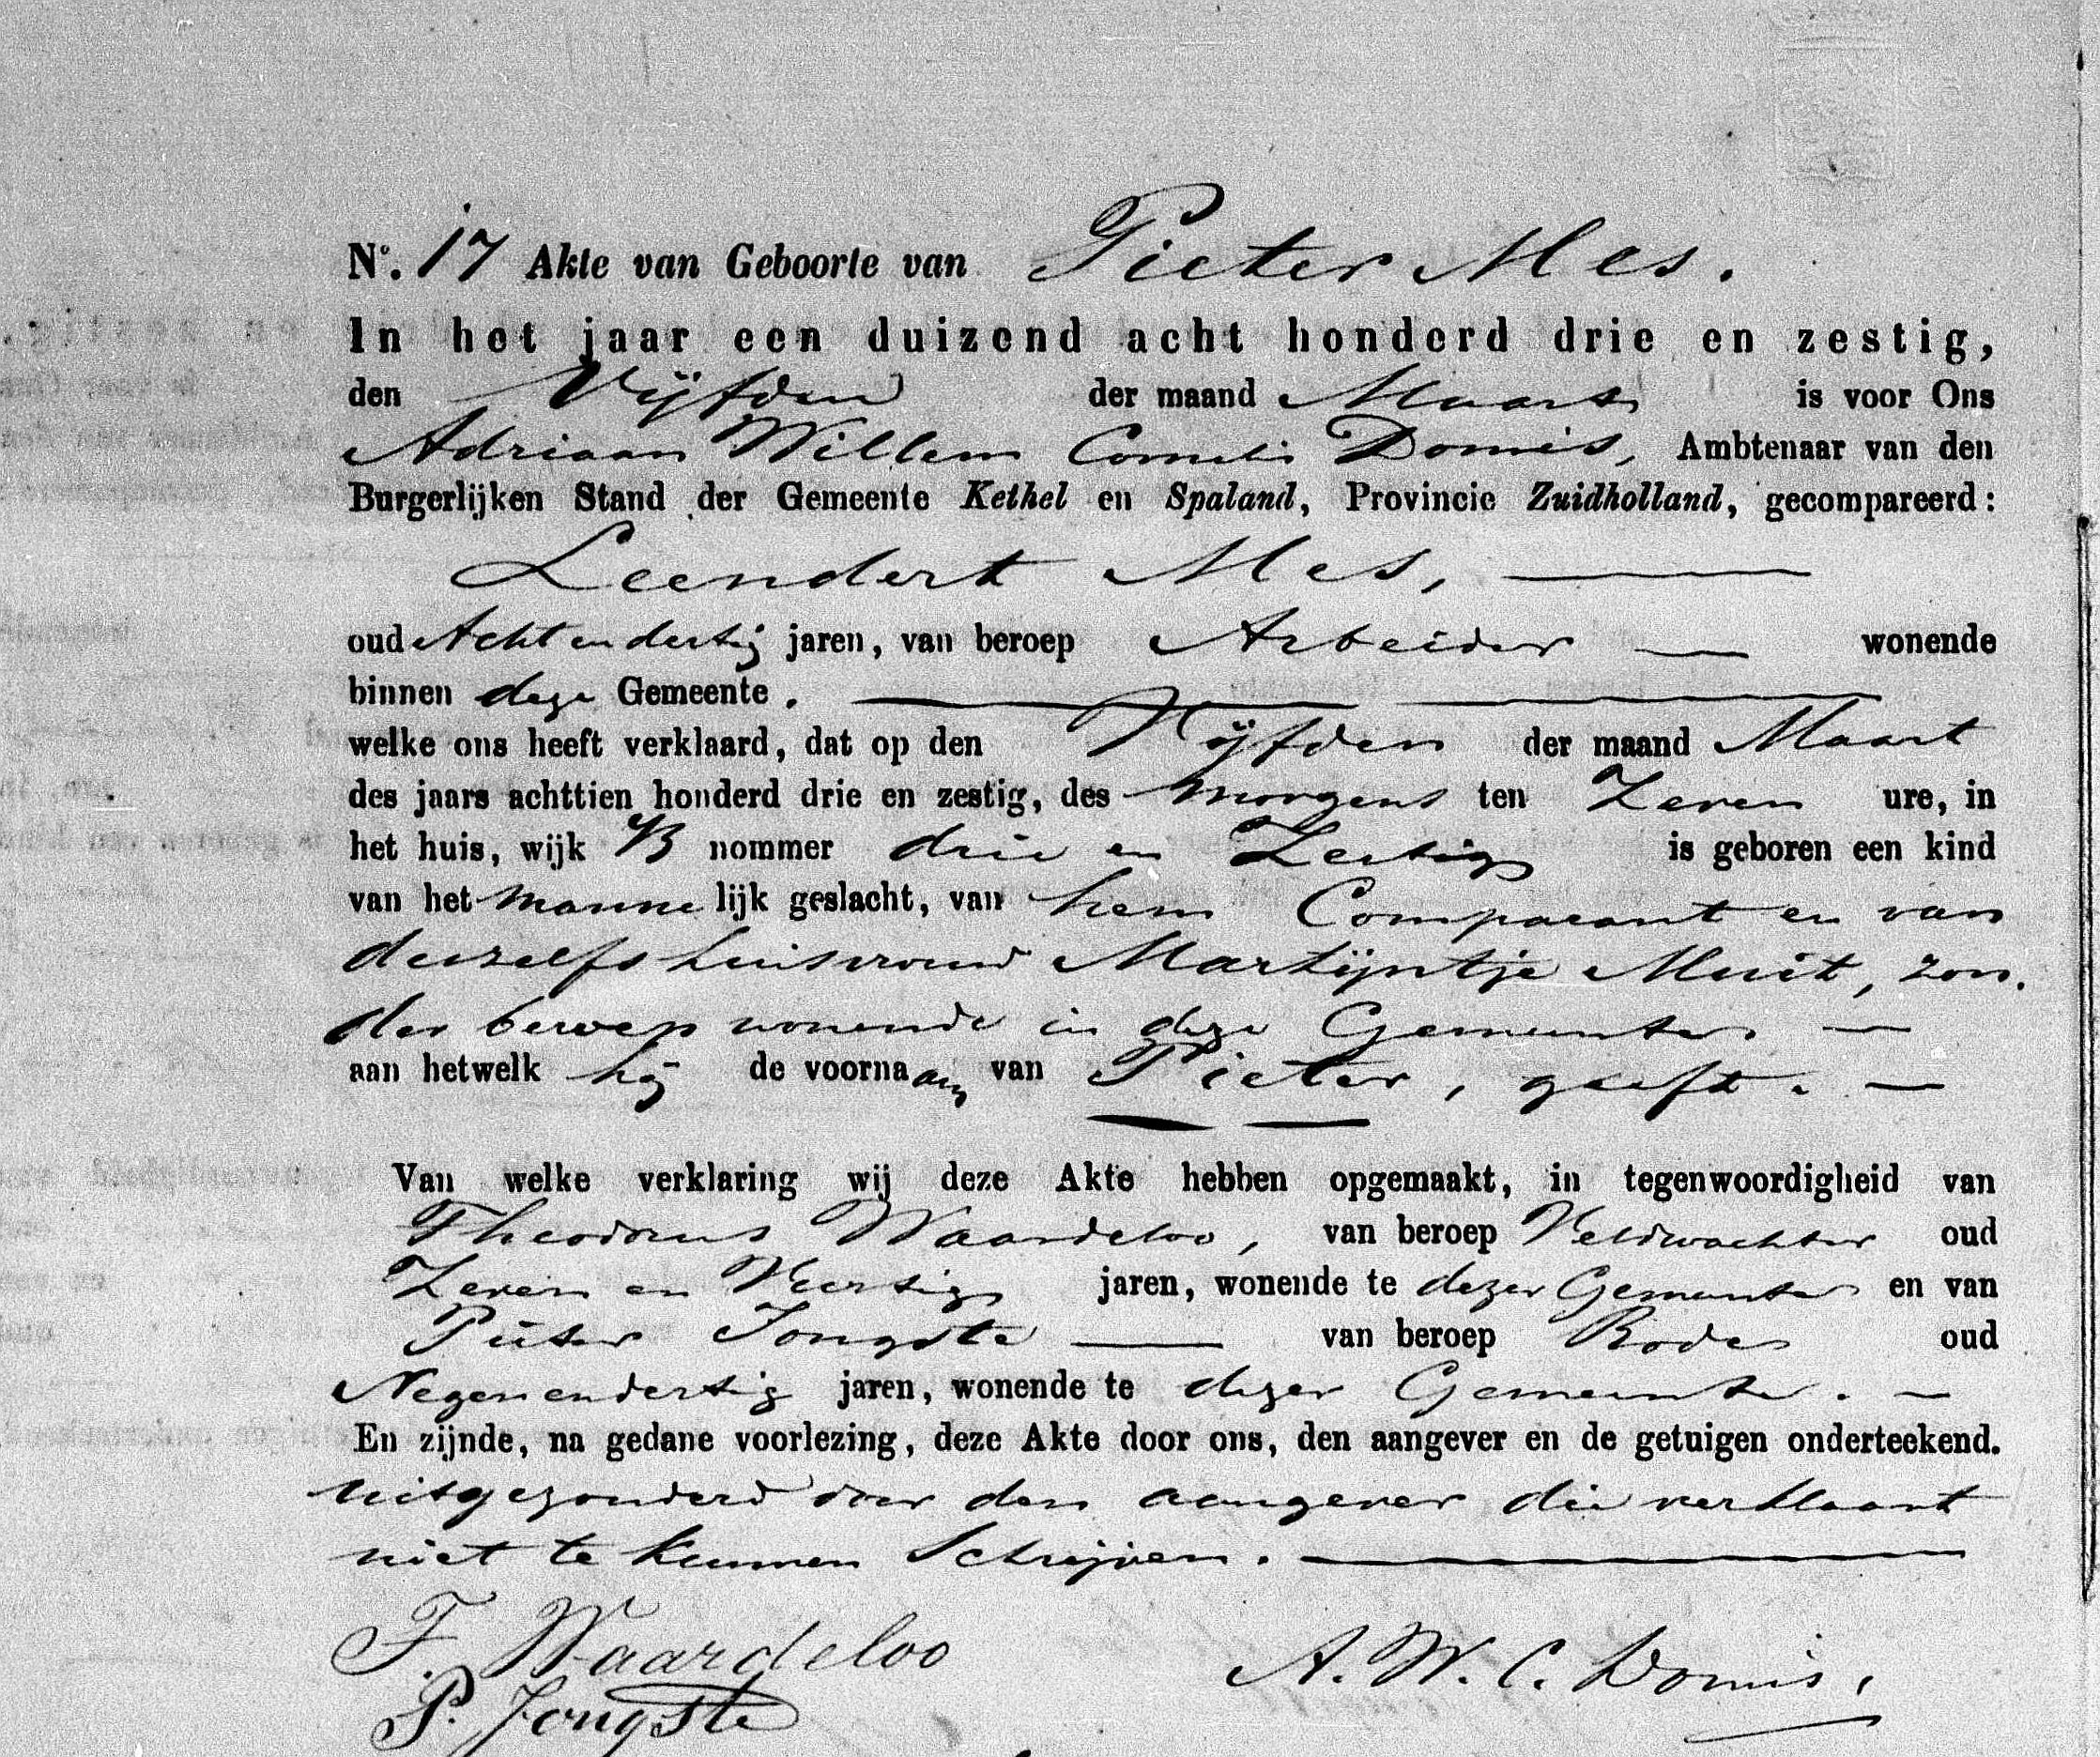 No. 17 Akte van Geboorte van Pieter Mes.
In het jaar een duizend acht honderd drie en zestig,
den Vijfden der maand Maart is voor Ons
Adriaan Willem Cornelis Domis, Ambtenaar van den
Burgerlijken Stand der Gemeente Kethel en Spaland, Provincie Zuidholland, gecompareerd:
Leendert Mes,
oud Acht en dertig jaren, van beroep Arbeider wonende
binnen deze Gemeente.
welke ons heeft verklaard, dat op den Vijfden der maand Maart
des jaars achttien honderd drie en zestig, des morgens ten Zeven ure, in
het huis, wijk B nommer drie en Zestig is geboren een kind
van het mannelijk geslacht, van hem Comparant en van
deszelfs huisvrouw Martijntje Muit, zon.
der beroep wonende in deze Gemeente.
aan hetwelk hij de voornaam van Pieter, geeft.
Van welke verklaring wij deze Akte hebben opgemaakt, in tegenwoordigheid van
Theodorus Waardeloo, van beroep Veldwachter oud
Zeven en Veertig jaren, wonende te dezer Gemeente en van
Pieter Jongste van beroep Bode oud
Negen en dertig jaren, wonende te dezer Gemeente.
En zijnde, na gedane voorlezing, deze Akte door ons, den aangever en de getuigen onderteekend.
uitgezonderd door den aangever die verklaart
niet te kunnen Schrijven.
T. Waardeloo
A. W. C. Domis,
P. Jongste